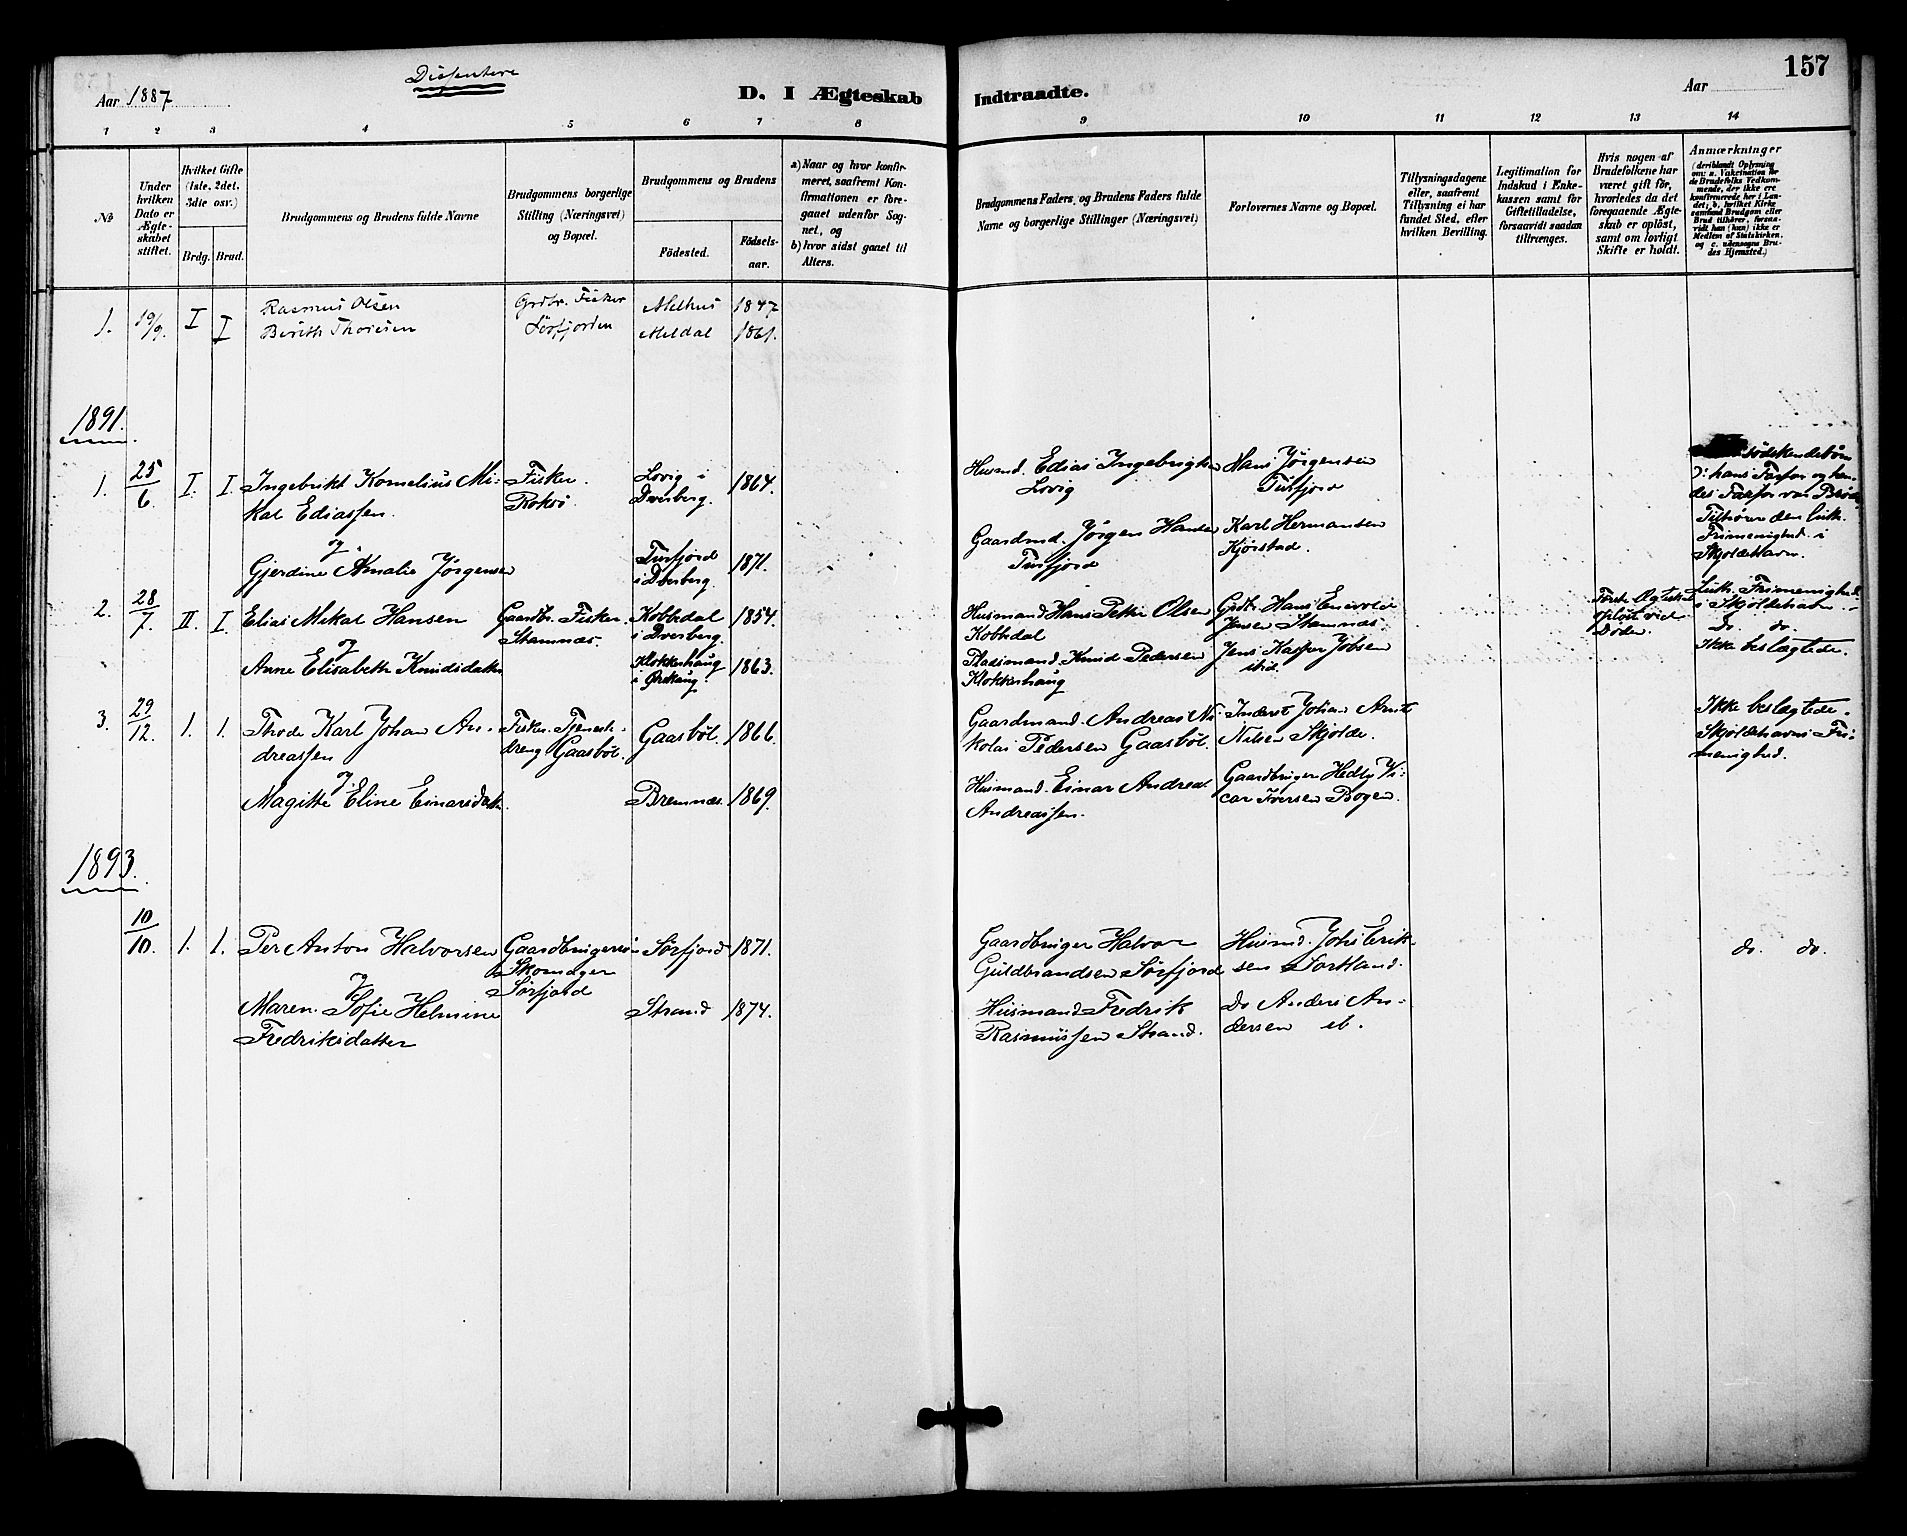 157
Dissentere
Aar 1887
D. I Ægteskab Indtraadte.
Aar
1 2 3 4 5 6 7 8 9 10 11 12 13 14
No
Under hvilken Dato er Ægteskabet stiftet.
Hvilket Gifte (1ste, 2det, 3die osv.)
Brdg. Brud.
Brudgommens og Brudens fulde Navne
Brudgommens borgerlige Stilling (Næringsvei) og Bopæl.
Brudgommens og Brudens
Födested.
Födselsaar.
a) Naar og hvor konfirmeret, saafremt Konfirmationen er foregaaet udenfor Sognet, og
b) hvor sidst gaaet til Alters.
Brudgommens Faders og Brudens Faders fulde Navne og borgerlige Stillinger (Næringsvei)
Forlovernes Navne og Bopæl.
Tillysningsdagene eller, saafremt Tillysning ei har fundet Sted, efter hvilken Bevilling.
Legitimation for Indskud i Enkekassen samt for Giftetilladelse, forsaavidt saadan tiltrænges.
Hvis nogen af Brudefolkene har været gift før, hvorledes da det foregaaende Ægteskab er oplöst, samt om lovligt Skifte er holdt.
Anmærkninger (deriblandt Oplysning om: a. Vakcination for de Brudefolks Vedkommende, der ikke ere konfirmerede her i Landet; b. hvilket Kirkesamfund Brudgom eller Brud tilhörer, forsaavidt han (hun) ikke er Medlem af Statskirken, og c. udensogns Brudes Hjemsted.)
1. 19/9. I I Rasmus Olsen Grdbr. Fisker Melhus 1847
Berith Thoresen Sørfjorden Meldal 1861.
1891.
1. 25/6. I. I. Ingebrikt Kornelius Mi- Fisker. Lovig i 1864. Husmd. Edias Ingebrigtsen Hans Jörgensen Södskendebörn
kal Ediassen. Roksö Dverberg. Lovig Tusfjord ɔ: hans Farfar og hen-
des Farfar var Brødre
og Gaardmd. Jörgen Hansen Karl Hermansen Tilhörer den luth.
Gjerdine Amalie Jörgensen Tusfjord i Dverberg. 1871. Tusfjord Kjörstad. Frimenighed i
Skjoldehavn.
2. 28/7. II. I. Elias Mikal Hansen Gaardbr. Fisker. Kobbdal 1854. Husmand Hans Petter Olsen Grdbr. Hans Enevold Første Ægteskab Luth. Frimenighed
og Stamnæs. i Dverberg. Kobbdal Jensen Stamnæs. oplöst ved i Skjoldehavn
Døden. Do do.
Anne Elisabeth Knudsdatter Klokkerhaug 1863. Pladsmand Knud Pedersen Jens Kasper Jobsen Ikke beslægtede.
i Ørskaug. Klokkerhaug ibid.
3. 29/12. 1. 1. Thode Karl Johan An- Fisker. Tjeneste- Gaasböl. 1866. Gaardmand. Andreas Ni- Inderst Johan Arnt Ikke beslægtede.
dreassen dreng Gaasböl. kolai Pedersen Gaasböl. Nilsen Skjolde. Skjoldehavns Fri-
og menighed.
Magitte Eline Einarsdatt. Bremnes. 1869. Husmand. Einar Andreas Gaardbruger Hedly Vi-
Andreassen. car Iversen Bogen.
1893.
10/10. 1. 1. Per Anton Halvorsen Gaardbrugersön Sørfjord 1871. Gaardbruger Halvor Husmd. Johs Erik- do. do.
og Skomager Guldbrandsen Sörfjord sen Sortland.
Sörfjord
Maren Sofie Helmine Strand 1874. Husmand Fredrik Do Anders An-
Fredriksdatter Rasmussen Strand. dersen ib.